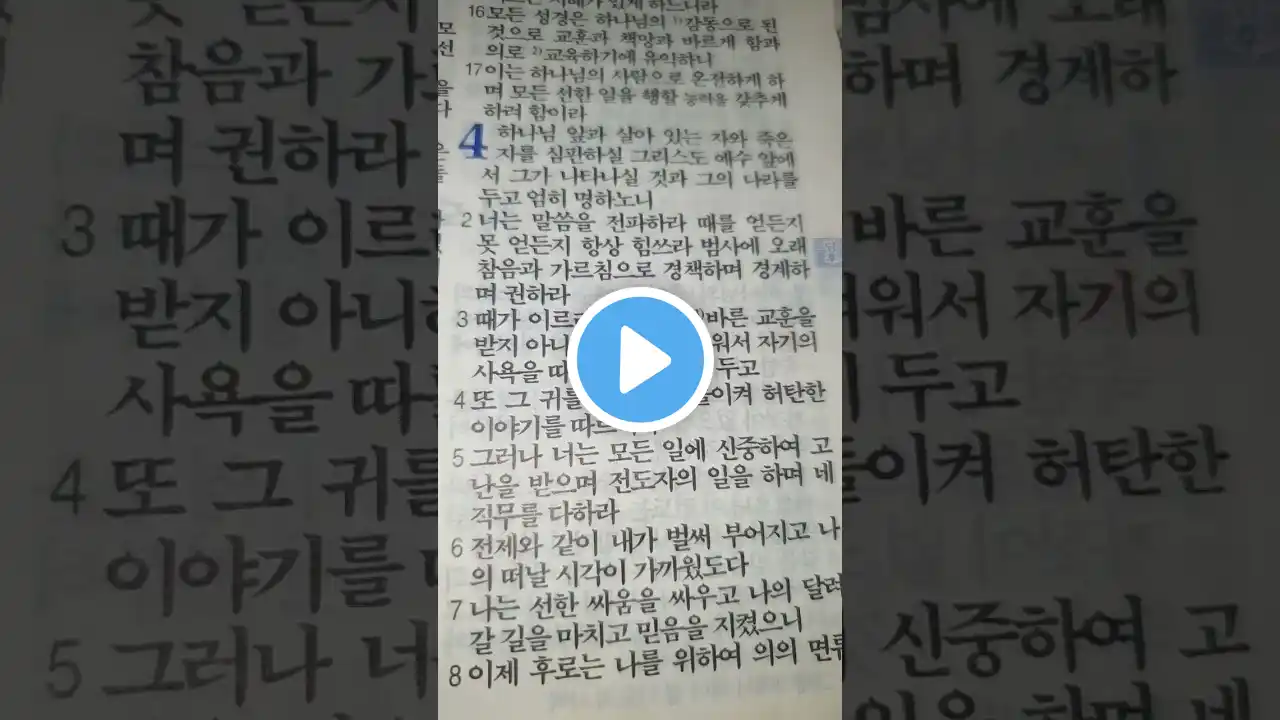 16 모든 성경은 하나님의 1)감동으로 된
것으로 교훈과 책망과 바르게 함과
의로 2)교육하기에 유익하니
17 이는 하나님의 사람으로 온전하게 하
며 모든 선한 일을 행할 능력을 갖추게
하려 함이라
4 하나님 앞과 살아 있는 자와 죽은
자를 심판하실 그리스도 예수 앞에
서 그가 나타나실 것과 그의 나라를
두고 엄히 명하노니
2 너는 말씀을 전파하라 때를 얻든지
못 얻든지 항상 힘쓰라 범사에 오래
참음과 가르침으로 경책하며 경계하
며 권하라
3 때가 이르 바른 교훈을
받지 아니 워서 자기의
사욕을 따 두고
4 또 그 귀를 이켜 허탄한
이야기를 따르
5 그러나 너는 모든 일에 신중하여 고
난을 받으며 전도자의 일을 하며 네
직무를 다하라
6 전제와 같이 내가 벌써 부어지고 나
의 떠날 시각이 가까웠도다
7 나는 선한 싸움을 싸우고 나의 달려
갈 길을 마치고 믿음을 지켰으니
8 이제 후로는 나를 위하여 의의 면류